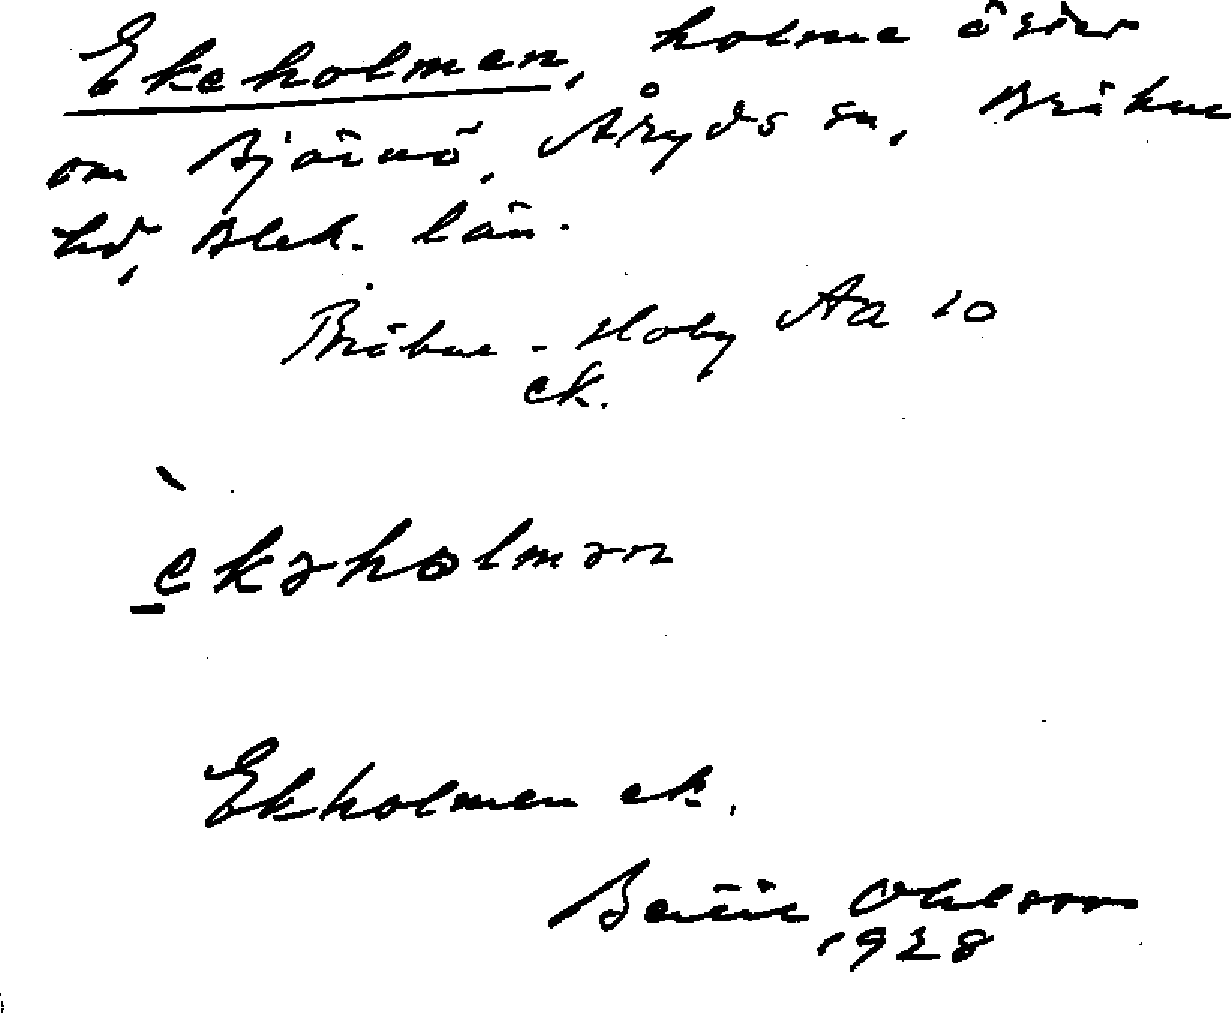 Ekeholmen, holme öster
om Björnö, Åryds sn, Bräkne
hd, Blek. län.
Bräkne-Hoby Aa 10
ek.
èkəholmən
Ekholmen ek.
Bertil Ohlsson
1928